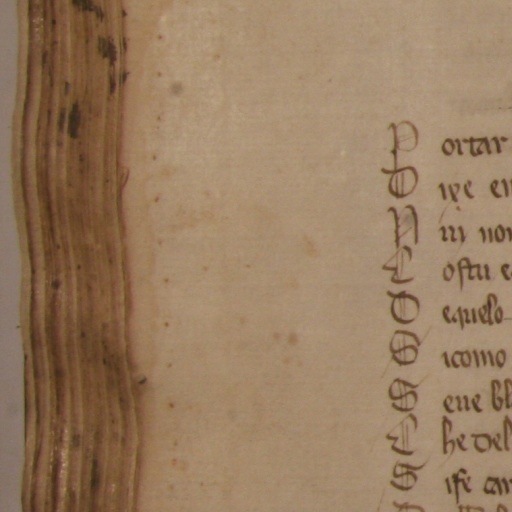 P ortar
D ixe en
N iij non
C ostu e
D equelo
S icomo
S eue bl
C he del
S ise can